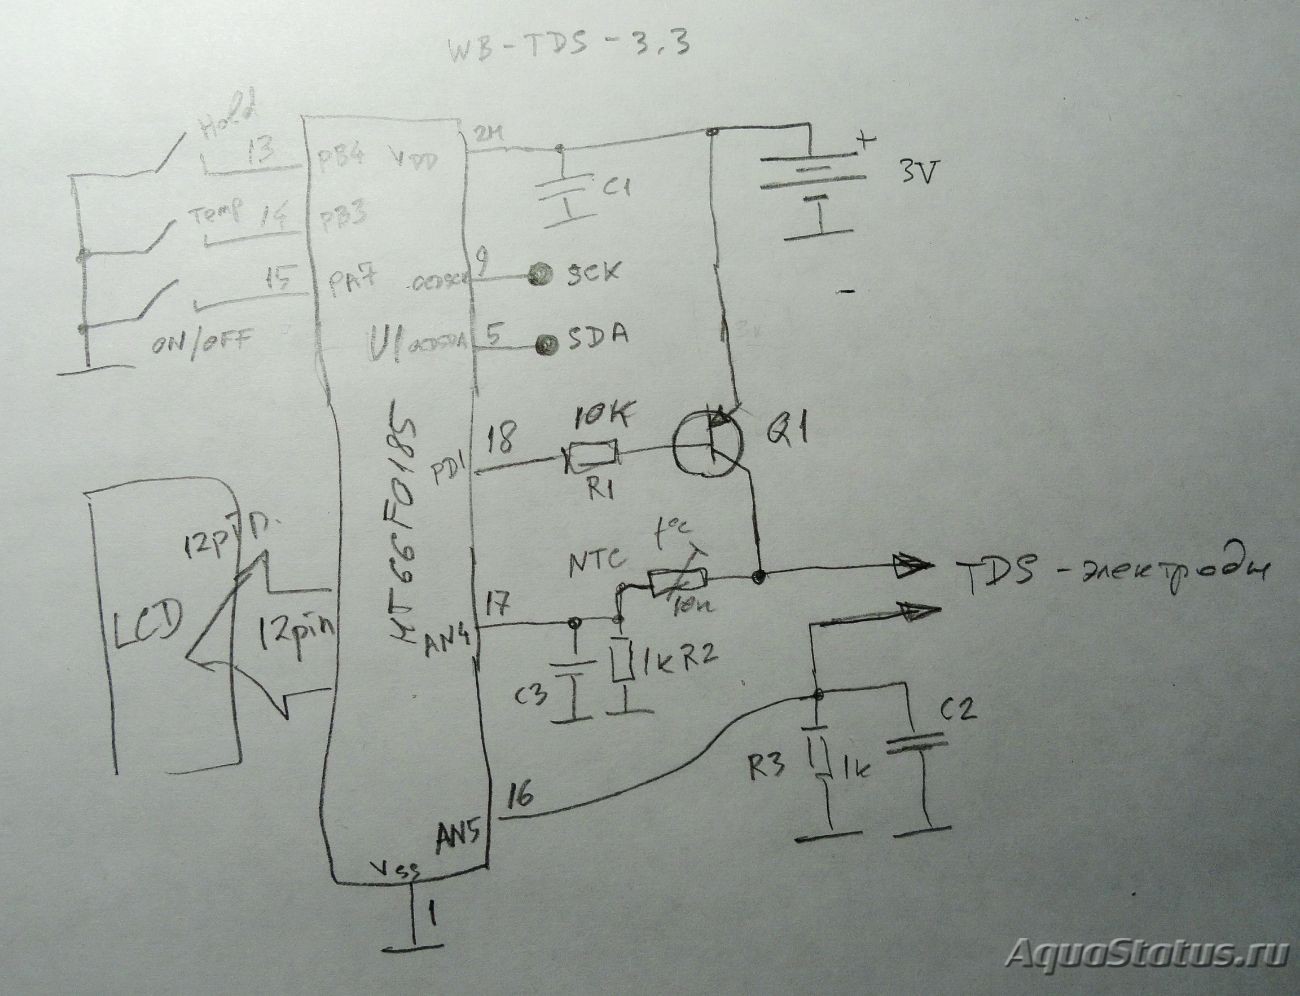 WB-TDS-3.3
Hold
13
PB4
VDD
24
C1
+
3V
-
Temp
14
PB3
15
PA7
ON/OFF
U1
OCDSCK
9
SCK
OCDSDA
5
SDA
HT66F0185
PD1
18
10K
R1
Q1
NTC
t°c
10к
TDS-электроды
LCD
12pin
12pin
AN4
17
C3
1k R2
AN5
16
R3
1k
C2
Vss
1
AquaStatus.ru